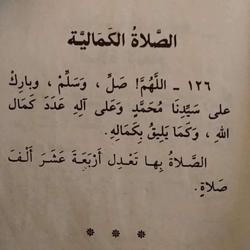 الصَّلاةُ الكَمَاليَّة
١٢٦ - اللَّهُمَّ! صَلِّ ، وَسَلِّمْ ، وبارِكْ
على سَيِّدِنَا مُحَمَّدٍ وَعَلى آلِهِ عَدَدَ كَمَال
اللهِ ، وَكَمَا يَلِيقُ بِكَمَالِهِ.
الصَّلاةُ بِها تَعْدِل أَرْبَعَةَ عَشَرَ أَلْفَ
صَلاةٍ.
* * *